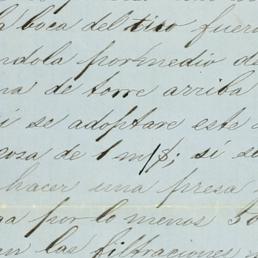 la boca del tiro fuer
ndola por medio de
na de torre arriba
si se adoptare este
coza de 1 m/$; si se
hacer una presa
ga por lo menos 50
an las filtraciones